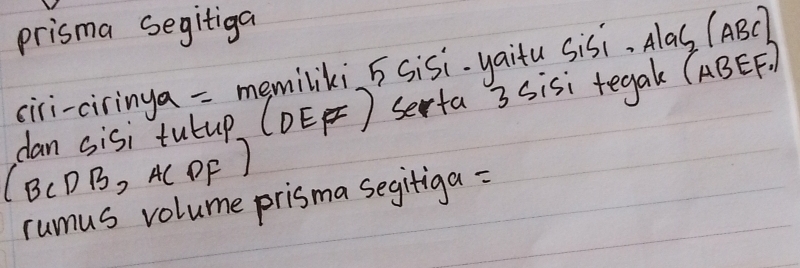 prisma segitiga
ciri-cirinya = memiliki 5 sisi. yaitu sisi. Alas (ABC)
dan sisi tutup (DEF) serta 3 sisi tegak (ABEF.)
(BCDB, ACDF)
rumus volume prisma segitiga =